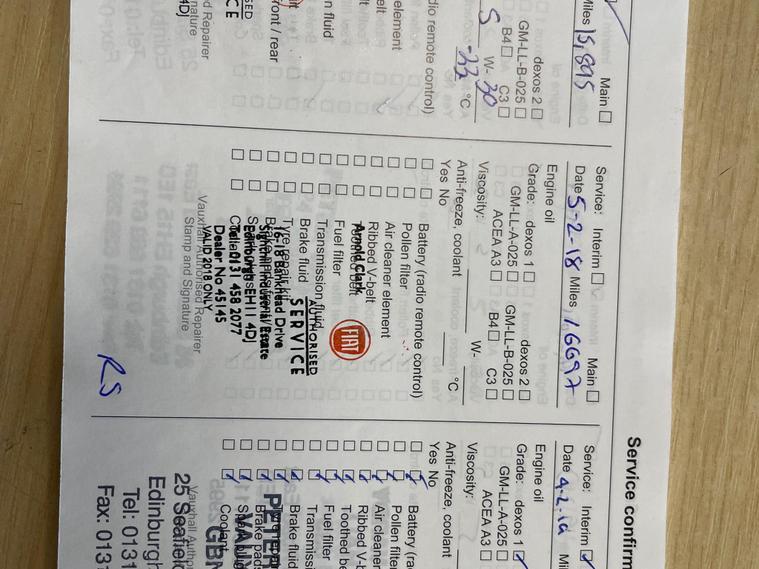 Service confirm
Main
Miles 15,895
dexos 2
GM-LL-B-025
B4 C3
5 W-30
-22 °C
dio remote control)
element
elt
n fluid
ront / rear
d Repairer
nature
Service: Interim Main
Date 5-2-18 Miles 16697
Engine oil
Grade: dexos 1 dexos 2
GM-LL-A-025 GM-LL-B-025
ACEA A3 B4 C3
Viscosity: W-
Anti-freeze, coolant °C
Yes No
Battery (radio remote control)
Pollen filter
Air cleaner element
Ribbed V-belt
Arnold Clark
FIAT
Fuel filter
Transmission fluid
AUTHORISED
SERVICE
Brake fluid
Tyre repair kit
16-18 Bankhead Drive
Sighthill Industrial Estate
Edinburgh EH11 4DJ
Tel: 0131 458 2077
Dealer No 45145
VALID 2018 ONLY
Vauxhall Authorised Repairer
Stamp and Signature
RS
Service: Interim
Date 4.2.19 Mil
Engine oil
Grade: dexos 1
GM-LL-A-025
ACEA A3
Viscosity:
Anti-freeze, coolant
Yes No
Battery (rad
Pollen filte
Air cleaner
Ribbed V-b
Toothed be
Fuel filter
Transmiss
Brake fluid
Brake pads
Coolant
Vauxhall Autho
25 Seafield
Edinburgh
Tel: 0131
Fax: 0131